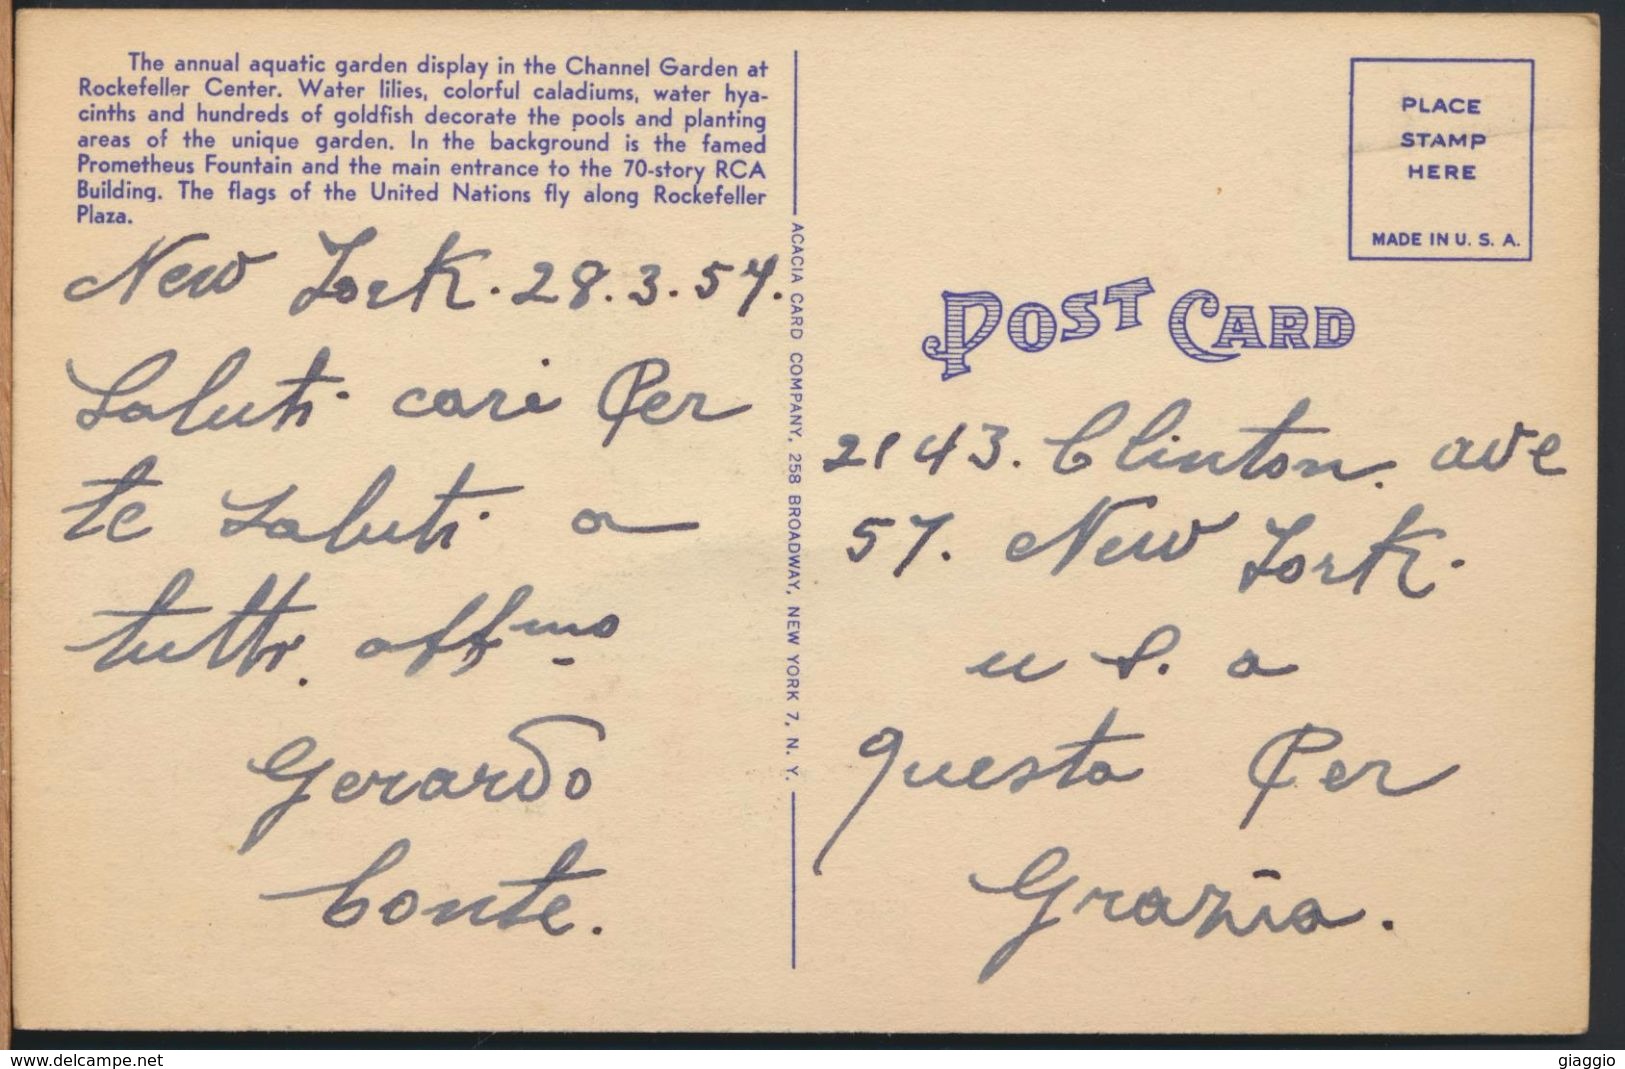 The annual aquatic garden display in the Channel Garden at
Rockefeller Center. Water lilies, colorful caladiums, water hya-
cinths and hundreds of goldfish decorate the pools and planting
areas of the unique garden. In the background is the famed
Prometheus Fountain and the main entrance to the 70-story RCA
Building. The flags of the United Nations fly along Rockefeller
Plaza.
New York. 28.3.57.
Saluti cari Per
te Saluti a
tutti. affmo
Gerardo
Conte.
ACACIA CARD COMPANY, 258 BROADWAY, NEW YORK 7, N. Y.
PLACE
STAMP
HERE
MADE IN U. S. A.
POST CARD
2143. Clinton. ave
57. New York.
u S. a
questa Per
Grazia.
www.delcampe.net
giaggio